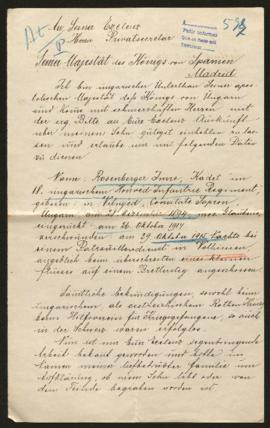 An Seine Exzelenz
Herrn Privatsecretär
Seiner Majestät des Königs von Spanien
Madrid
Ich bin ungarischer Unterthan Seiner apos-
tolischen Majestät des Königs von Ungarn
und komme mit schmerzhaftem Herzen mit
der erg. Bitte an Eure Exzelenz Auskünfte
über meinen Sohn gütigst einholen zu las-
sen und erlaube mir mit folgenden Daten
zu dienen
Name Rosenberger Imre, Kadet im
18. ungarischen Honved Infanterie Regiment,
geboren in Vitnyéd, Comitate Sopron,
Ungarn am 1894, mos. Glaubens,
eingerückt am 26. Oktober 1914
verschwunden am 29. Oktober 1915 Nachts bei
einem Patrouillendienst in Volhinien,
angeblich beim überschreiten eines kleinen
Flusses auf einem Brettersteig angeschossen
Sämtliche Erkundigungen, sowohl beim
ungarischen als oesterreichischen Roten Kreuz
beim Hilfsverein für Kriegsgefangene, als auch
in der Schweiz waren erfolglos.
Nun ist uns Eure Exzelenz segenbringende
Arbeit bekannt geworden und bitte im
Namen meiner tiefbetrübter Familie um
Aufklärung, ob mein Sohn lebt oder von
dem Feinde begraben worden ist.